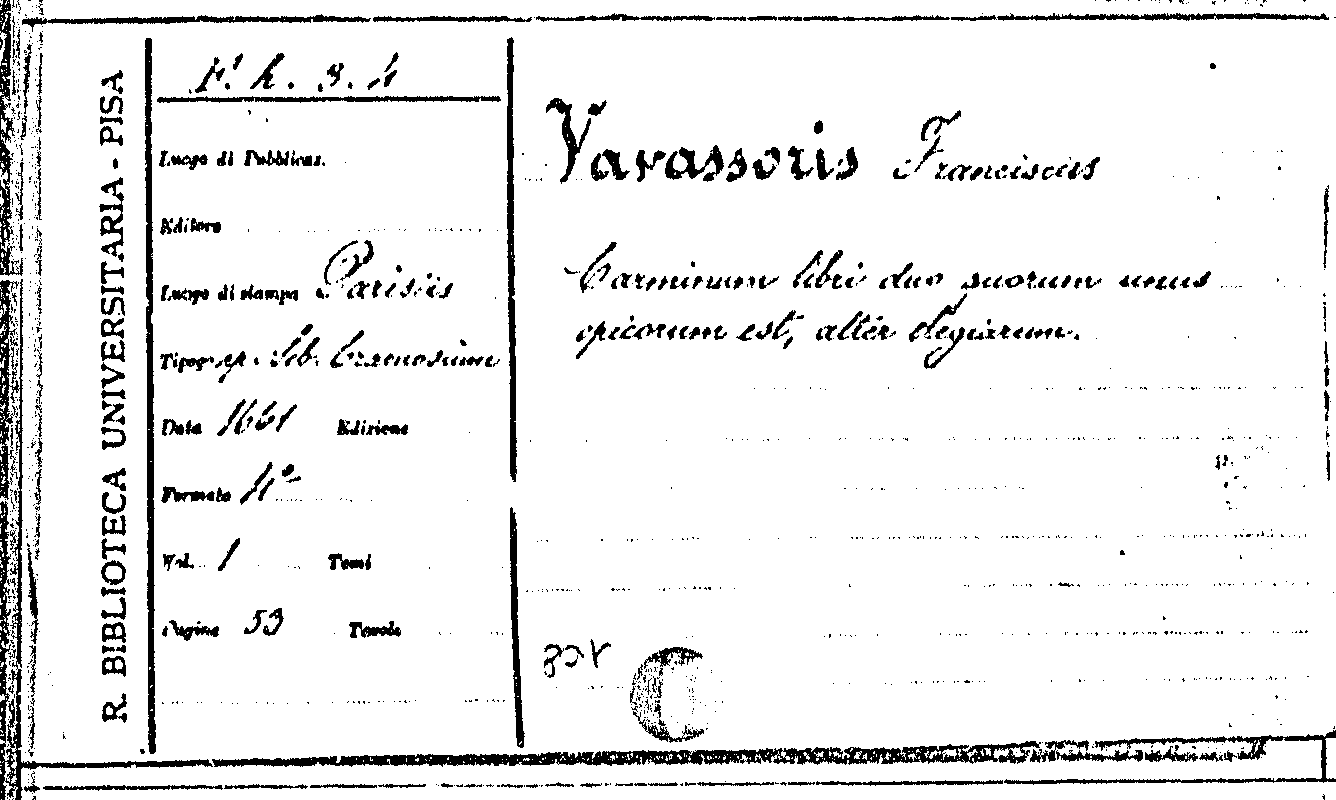 R. BIBLIOTECA UNIVERSITARIA - PISA
F. h. 3. 4
Luogo di Pubblicaz.
Editore
Luogo di stampa Parisiis
Tipogr. ap. Seb. Cramosium
Data 1661 Edizione
Formato 4º
Vol. 1 Tomi
Pagine 53 Tavole
Vavassoris Franciscus
Carminum libri duo suorum unus
epicorum est, alter elegiarum.